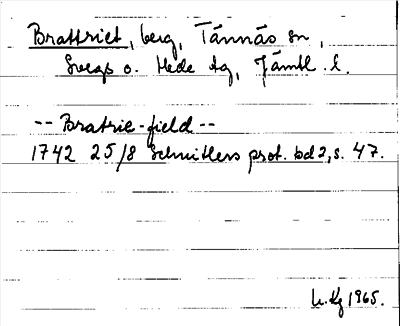 Brattriet, berg, Tännäs sn,
Svegs o. Hede tg, Jämtl. l.
-- Bratrie-field --
1742 25/8 Schnitlers prot. bd 2, s. 47.
1965.